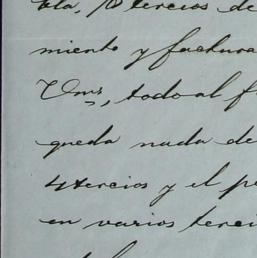 tercios de
miento y factura
Vms, todo al f
queda nada de
4 tercios y el pe
en varios terci